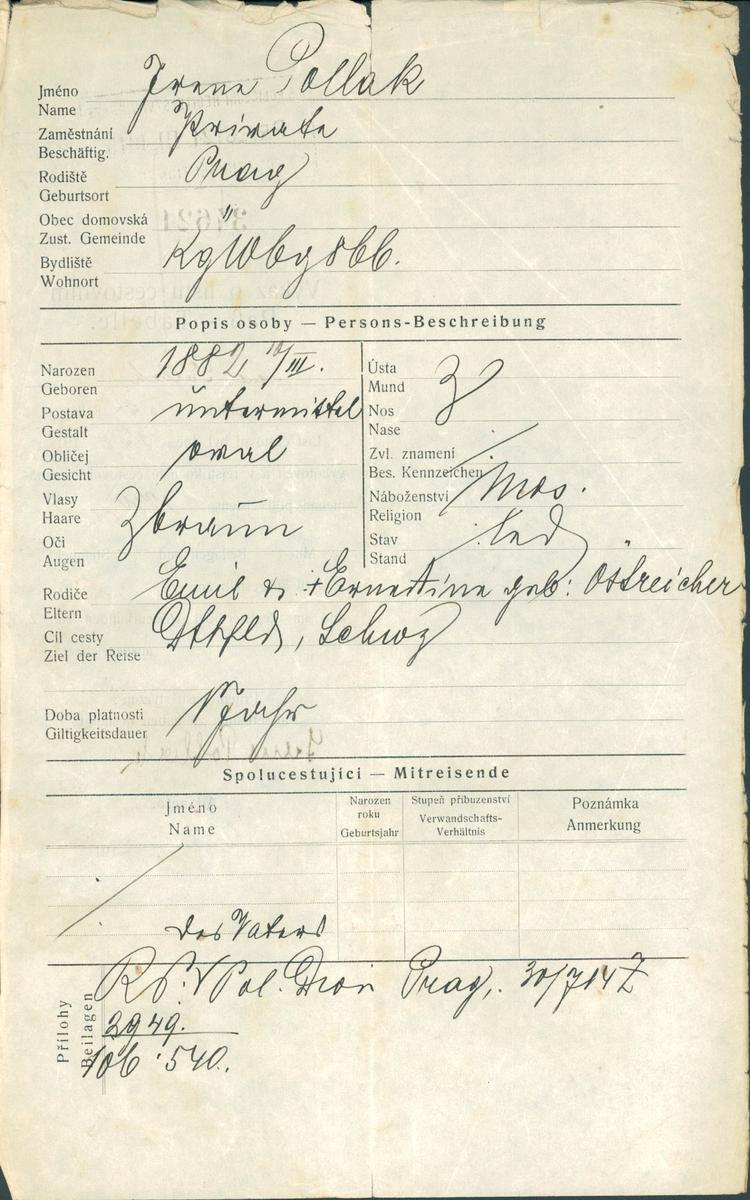 Jméno
Name Irene Pollak
Zaměstnání
Beschäftig. Private
Rodiště
Geburtsort Prag
Obec domovská
Zust. Gemeinde "
Bydliště
Wohnort KglWbg 866.
Popis osoby — Persons-Beschreibung
Narozen
Geboren 1882 10/III.
Postava
Gestalt untermittel
Obličej
Gesicht oval
Vlasy
Haare
Oči
Augen braun
Ústa
Mund
Nos
Nase
Zvl. znamení
Bes. Kennzeichen
Náboženství
Religion mos.
Stav
Stand led
Rodiče
Eltern Emil & +Ernestine geb: Östreicher
Cíl cesty
Ziel der Reise Dtschld, Schwz
Doba platnosti
Giltigkeitsdauer 1 Jahr
Spolucestující — Mitreisende
Jméno
Name
Narozen
roku
Geburtsjahr
Stupeň příbuzenství
Verwandschafts-
Verhältnis
Poznámka
Anmerkung
des Vaters
Přílohy
Beilagen
RP. v Pol. Dion Prag, 30/7 04 Z
2949.
Job: 540.